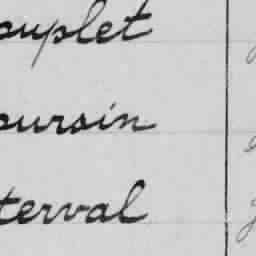 ouplet
oursin
terval